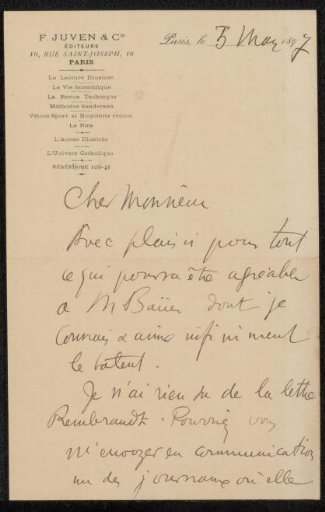 F. JUVEN & Cie
ÉDITEURS
10, RUE SAINT-JOSEPH, 10
PARIS
La Lecture Illustrée
La Vie Scientifique
La Revue Technique
Méthodes Sanderson
Véloce-Sport et Bicyclette réunis
Le Rire
L'Année Illustrée
L'Univers Catholique
TÉLÉPHONE
Paris, le 5 May 1897
Cher Monsieur
Avec plaisir pour tout
ce qui pourra être agréable
à M dont je
connais & aime infiniment
le talent.
Je n'ai rien su de la lettre
Rembrandt. Pourriez vous
m'envoyer en communication
un des journaux où elle